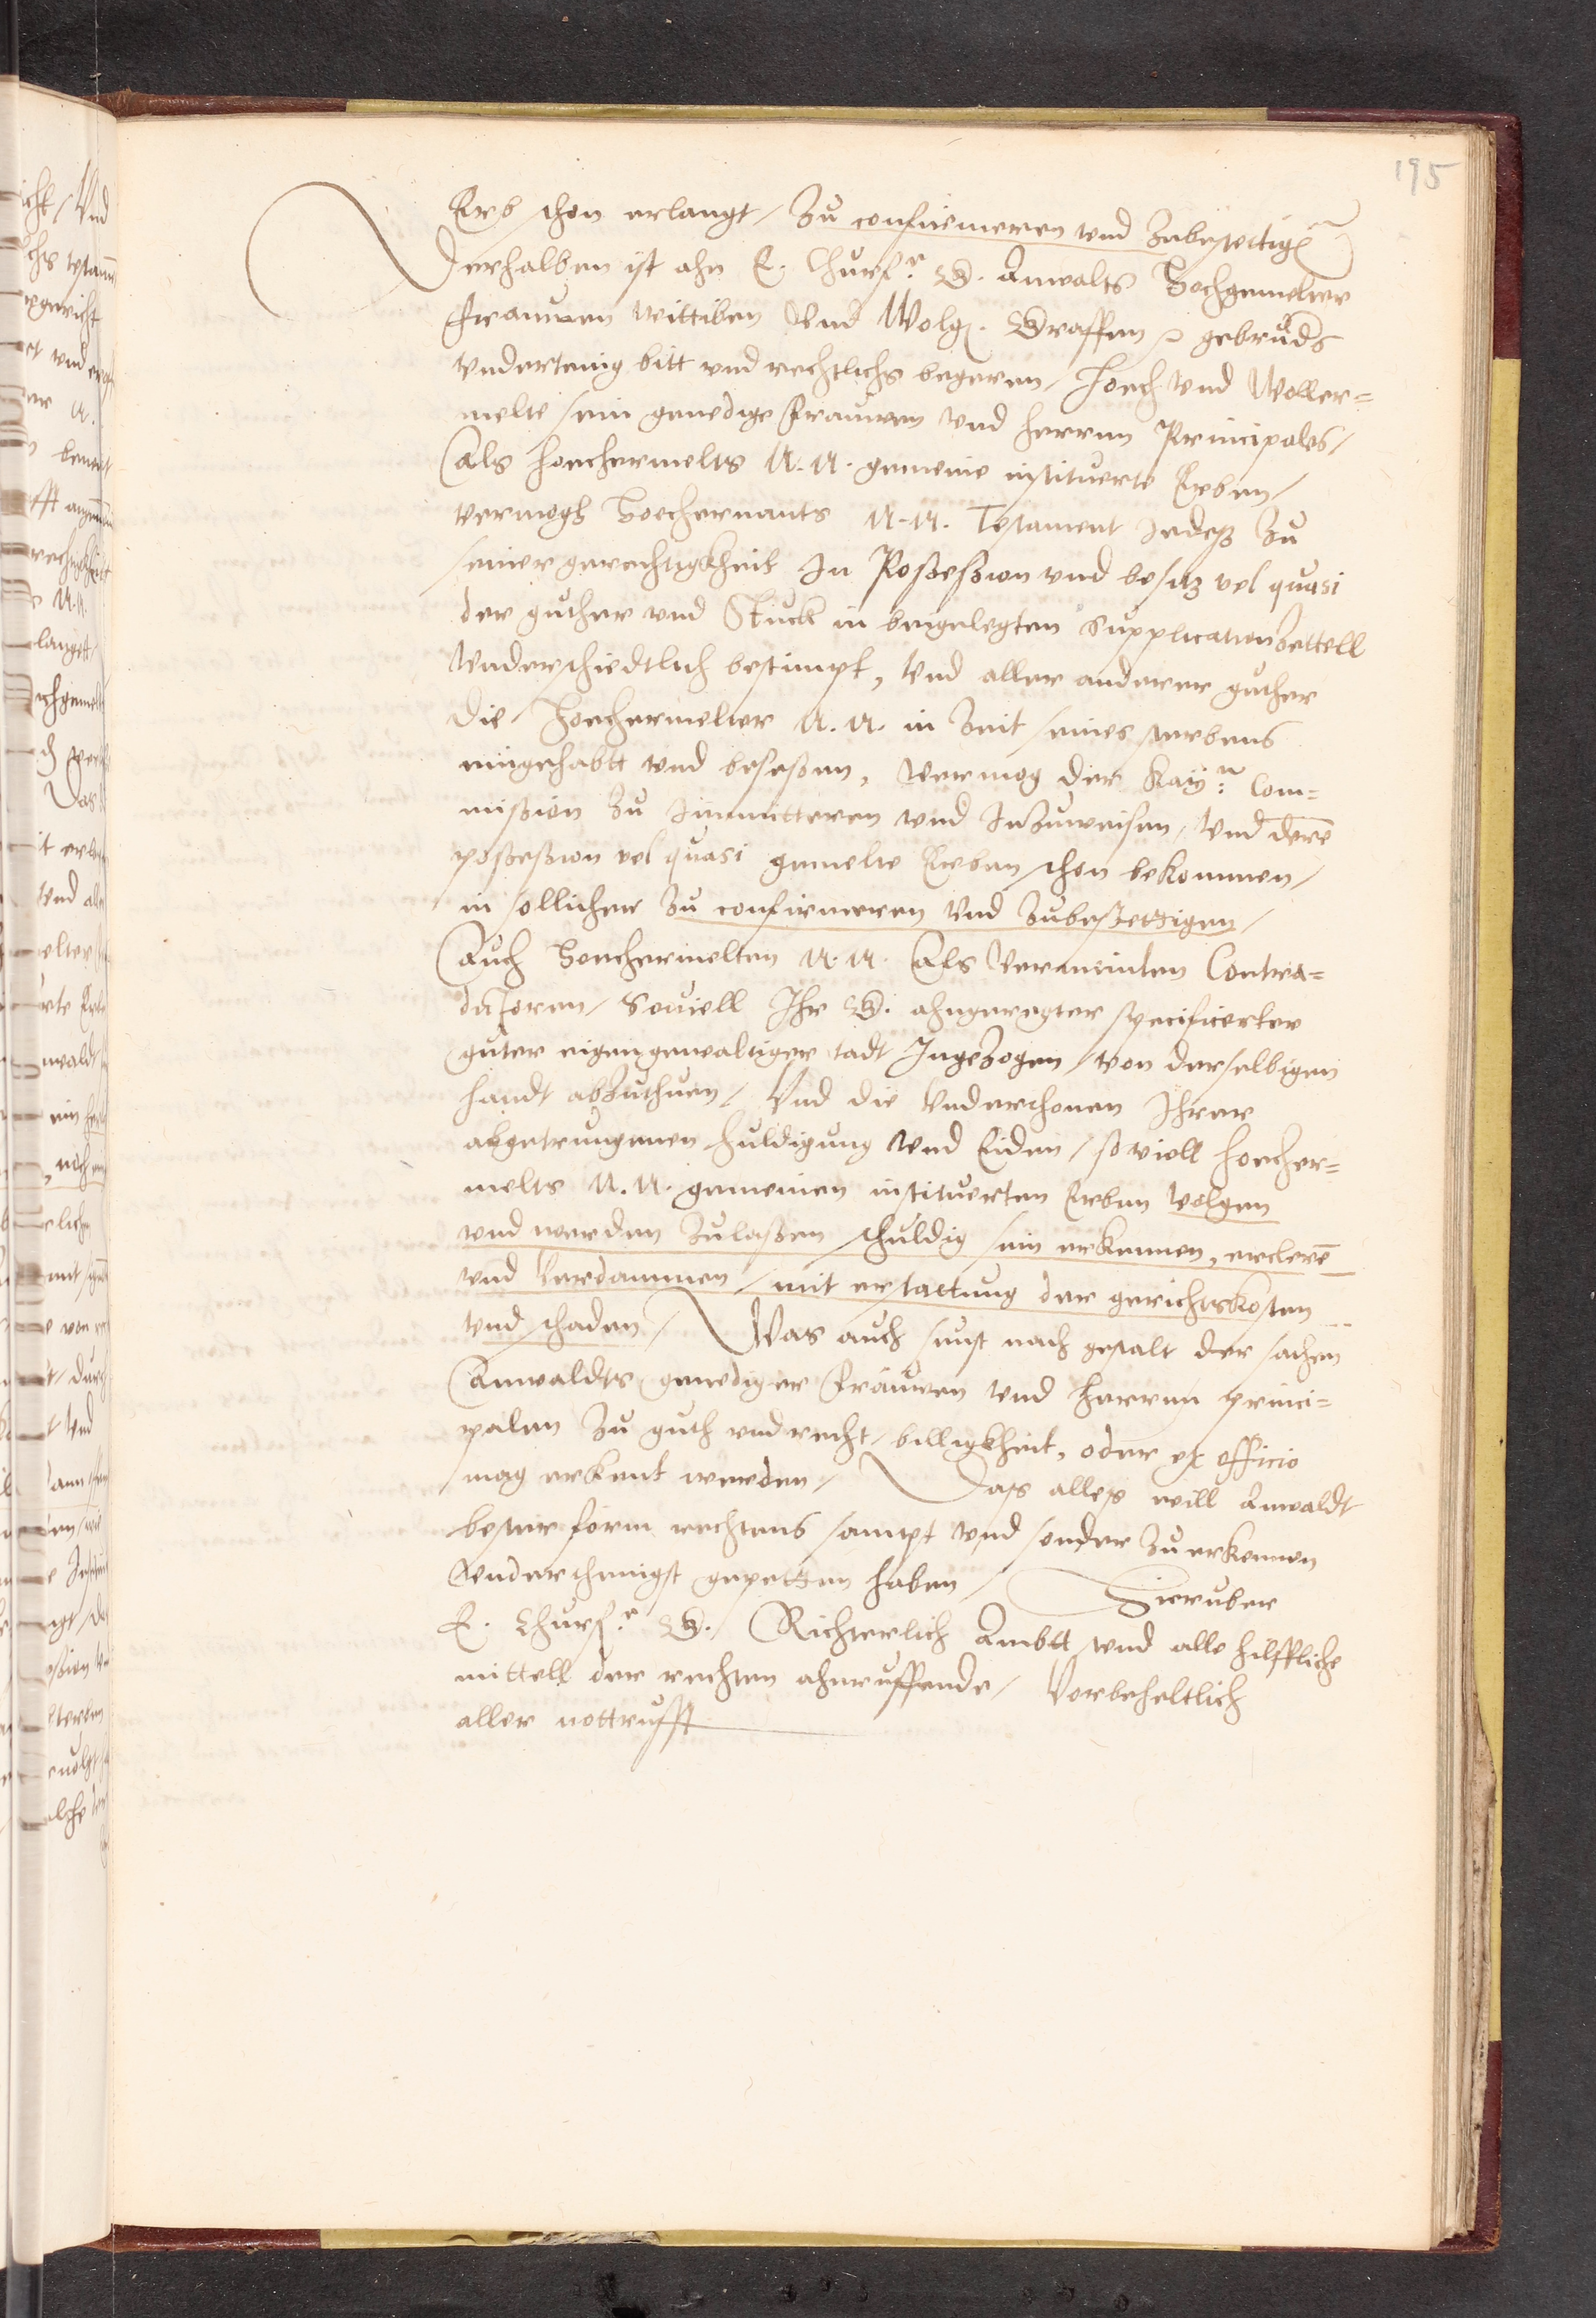 195
Erb schon erlangt / Zu confirmeren und Zubestettig(en)
Derhalben ist ahn E. Churf(r) G. Anwalts Hochgemelter
Frauwen Wittiben Und Wolg. Graffen gebruds
undertenig bitt und rechtlichs begeren / Hoech und Woller=
melte sein genedige Frauwen und Herrnn Principales /
Als hoechermelts N. N. gemeine instituerte Erben /
vermogh Hoechernants N. N. Testament Jedeß zu
seiner gerechtigkheit In Poßeßion und besitz vel quasi
der guther und Stuck in beigelegten SupplicationZettell
Underschiedtlich bestimpt, Und aller anderer guther
die Hoechermelter N. N. in Zeit seines sterbens
eingehabtt und beseßen, Vermog der Kay: Com=
mißion Zu Immitteren und Inzuweisen, Und dere
poßeßion vel quasi gemelte Erben schon bekommen /
in sollicher Zu confirmeren Und Zubestettigen /
Auch Hoechermelten N. N. Als Vermeinten Contra=
dictoren / Souiell Ihr G. ahngeregter specificerter
guter eigengewaltiger tadt Ingezogen / von derselbigen
handt abzuthuen / Und die Underthonen Ihrer
abgetrungenen huldigung Und Eiden / so viell hoecher=
melts N. N. gemeinen instituerten Erben Volgen
und werden Zulaßen schuldig sein erkennen, erclere
und Verdammen / mit erstattung der gerichtskosten
und schaden / Was auch sunst nach gestalt der sachen
Anwaldts genediger Frauwen und Herrnn princi=
palen Zu guth und recht / billigkheit, oder ex officio
mag erkent werden / Daß alles will Anwaldt
bester form rechtens sampt Und sonder Zu erkennen
Underthenigst gepetten haben / Hieruber
E. Churf(r) G. Richterlich Ambtt und alle hilffliche
mittell der rechten ahnruffende / Vorbeheltlich
aller notturfft